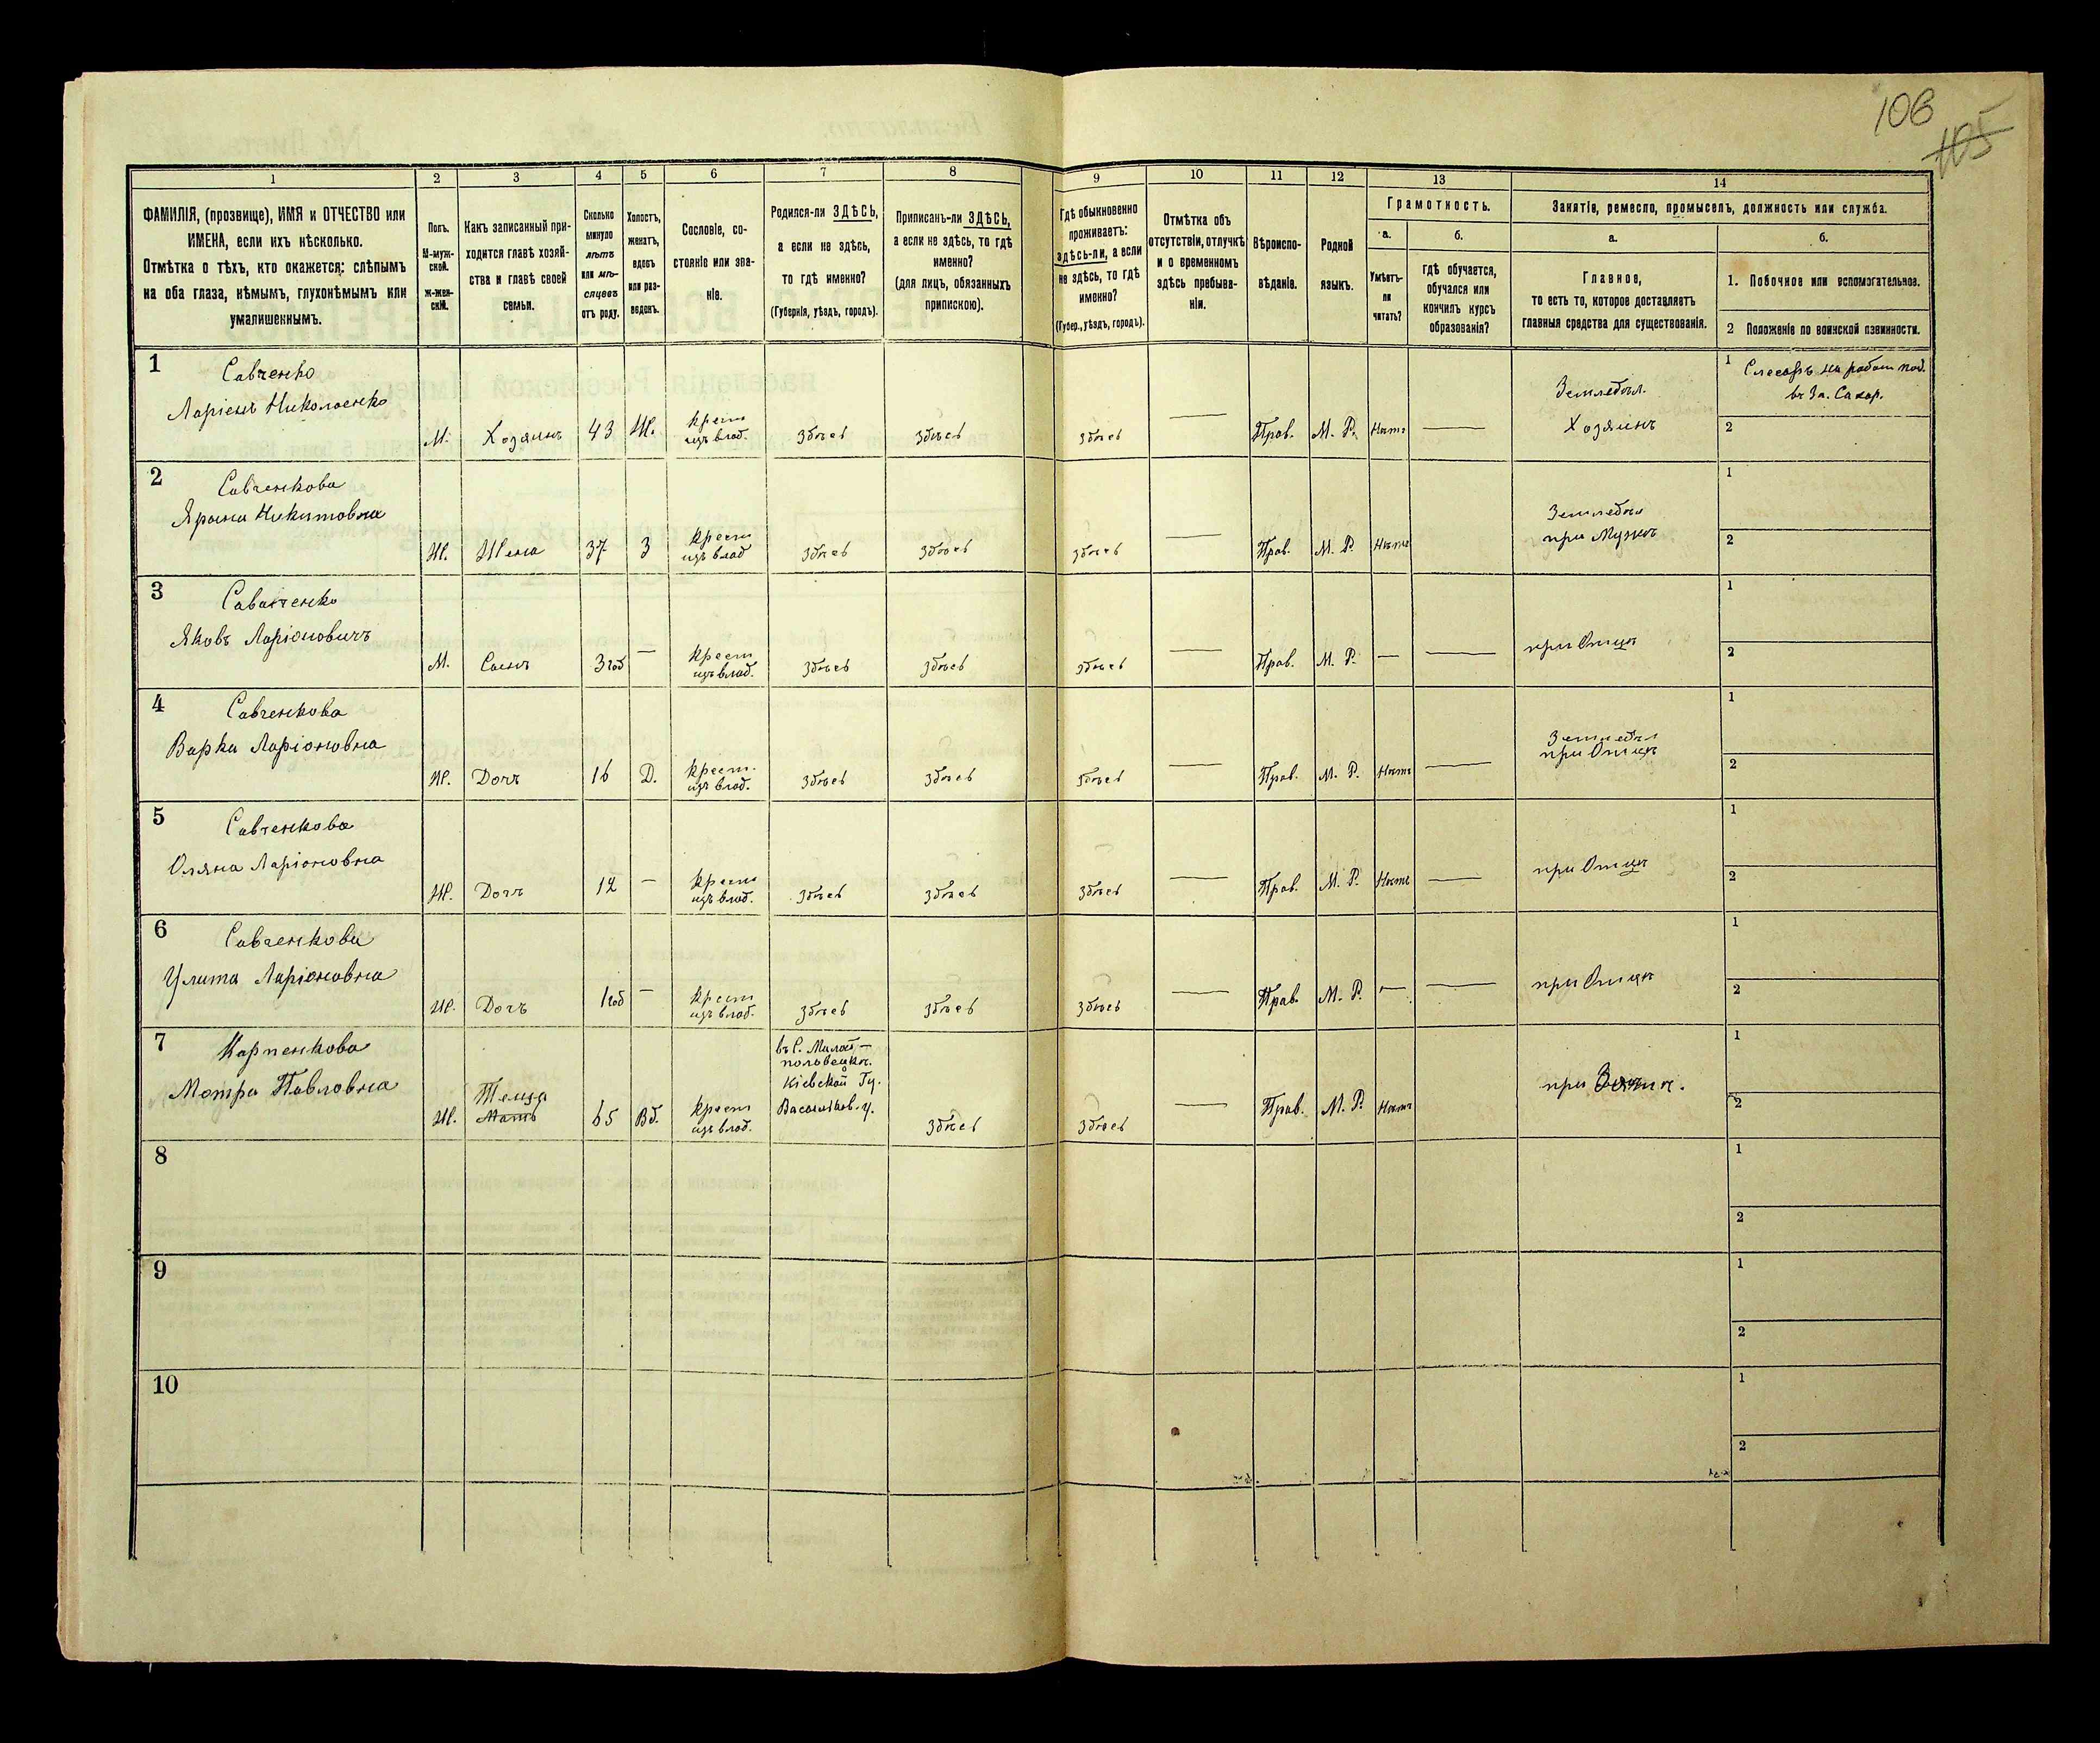 106
105
1
2
3
4
5
6
7
8
9
10
11
12
13
14
ФАМИЛІЯ, (прозвище), ИМЯ и ОТЧЕСТВО или
ИМЕНА, если ихъ нѣсколько.
Отмѣтка о тѣхъ, кто окажется: слѣпымъ
на оба глаза, нѣмымъ, глухонѣмымъ или
умалишеннымъ.
Полъ.
М-муж-
ской.
ж-жен-
скій.
Какъ записанный при-
ходится главѣ хозяй-
ства и главѣ своей
семьи.
Сколько
минуло
лѣтъ
или мѣ-
сяцевъ
отъ роду.
Холостъ,
женатъ,
вдовъ
или раз-
веденъ.
Сословіе, со-
стояніе или зва-
ніе.
Родился-ли ЗДѢСЬ,
а если не здѣсь,
то гдѣ именно?
(Губернія, уѣздъ, городъ).
Приписанъ-ли ЗДѢСЬ,
а если не здѣсь, то гдѣ
именно?
(для лицъ, обязанныхъ
припискою).
Гдѣ обыкновенно
проживаетъ:
здѣсь-ли, а если
не здѣсь, то гдѣ
именно?
(Губер., уѣздъ, городъ).
Отмѣтка объ
отсутствіи, отлучкѣ
и о временномъ
здѣсь пребыва-
ніи.
Вѣроиспо-
вѣданіе.
Родной
языкъ.
Грамотность.
а.
Умѣетъ-
ли
читать?
б.
гдѣ обучается,
обучался или
кончилъ курсъ
образованія?
Занятіе, ремесло, промыселъ, должность или служба.
а.
Главное,
то есть то, которое доставляетъ
главныя средства для существованія.
б.
1. Побочное или вспомогательное.
2 Положеніе по воинской повинности.
1
Савченко
Ларіонъ Николаенко
М.
Хозяинъ
43
Ж.
крест
изъ влад.
Здѣсь
Здѣсь
Здѣсь
—
Прав.
М. Р.
Нѣтъ
—
Земледѣл.
Хозяинъ
1
Слесарь на работ
въ За. Сахар.
2
2
Савченкова
Ярина Никитовна
Ж.
Жена
37
З
крест
изъ влад
Здѣсь
Здѣсь
Здѣсь
—
Прав.
М. Р.
Нѣтъ
Земледѣл
при Мужѣ
1
2
3
Савченко
Яковъ Ларіоновичъ
М.
Сынъ
3 год
—
крест
изъ влад.
Здѣсь
Здѣсь
Здѣсь
—
Прав.
М. Р.
—
—
при Отцѣ
1
2
4
Савченкова
Варка Ларіоновна
Ж.
Дочъ
16
Д.
крест.
изъ влад.
Здѣсь
Здѣсь
Здѣсь
—
Прав.
М. Р.
Нѣтъ
—
Земледѣл
при Отцѣ
1
2
5
Савченкова
Оляна Ларіоновна
Ж.
Дочъ
12
—
крест
изъ влад.
Здѣсь
Здѣсь
Здѣсь
—
Прав.
М. Р.
Нѣтъ
—
при Отцѣ
1
2
6
Савченкова
Улита Ларіоновна
Ж.
Дочъ
1 год
—
крест
изъ влад.
Здѣсь
Здѣсь
Здѣсь
—
Прав.
М. Р.
—
—
при Отцѣ
1
2
7
Карпенкова
Мотра Павловна
Ж.
Теща
Мать
65
Вд.
крест
изъ влад.
въ С. Мало-
половецк.
Кіевской Гу.
Васильков. у.
Здѣсь
Здѣсь
—
Прав.
М. Р.
Нѣтъ
при
1
2
8
1
2
9
1
2
10
1
2